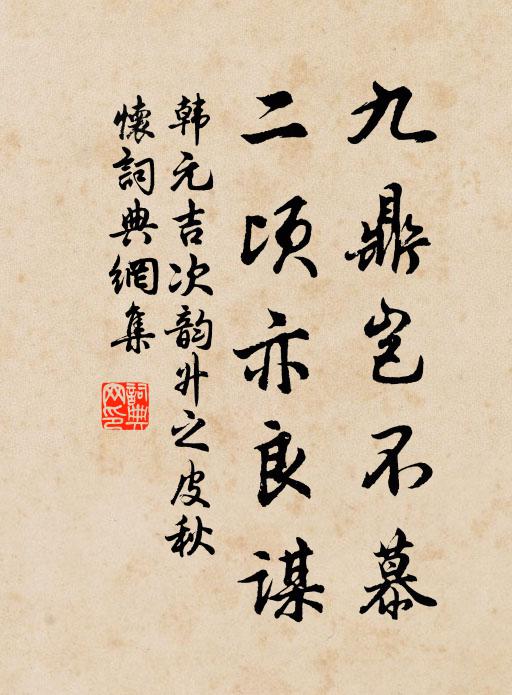 九鼎岂不慕
二顷亦良谋
韩元吉次韵廾之皮秋
懷詞典網集
詞典
网印